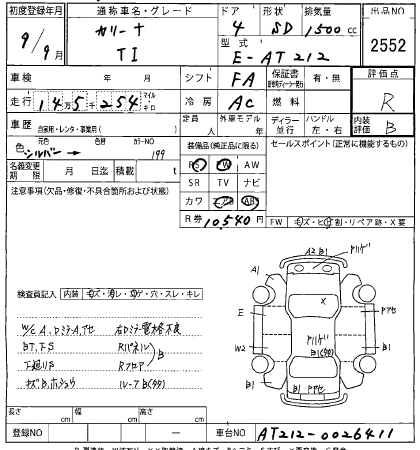 初度登録年月 通称車名・グレード ドア 形状 排気量 出品NO
9/9月 カリーナ 4 SD 1500cc
TI 型式 2552
E-AT212
車検 年 月 シフト FA 保証書 有・無 評価点
走行 14万5千254 マイル キロ 冷房 AC 燃料 R
定員 外車モデル ディーラー 並行 ハンドル 左・右 内装評価 B
車歴 自家用・レンタ・事業用( ) 人 年
色 元色 カラーNO 装備品(純正品に限る) セールスポイント(正常に機能するもの)
シルバー → 199 PS PW AW
名義変更期限 月 日迄 積載 t SR TV ナビ
注意事項(欠品・修復・不具合箇所および状態) カワ エアB ABS
R券 10,540円 FW キズ・ヒビ割・リペア跡・X要
検査員記入 内装 キズ・汚レ・コゲ・穴・スレ・キレ
W/C A、Dミラー A、アセ 右Dミラー電格不良
BT、FS Rパネル
下廻りS Rフロア B
キズB、ホショウ ルーフB(タタ)
A2 B1 ハゲ
A1
X
E Pアセ
ハゲ
W2 B1(タタ) Pアセ
B1 B1 Pアセ B1
長さ cm 幅 cm 高さ cm
登録NO 車台NO AT212-0026411